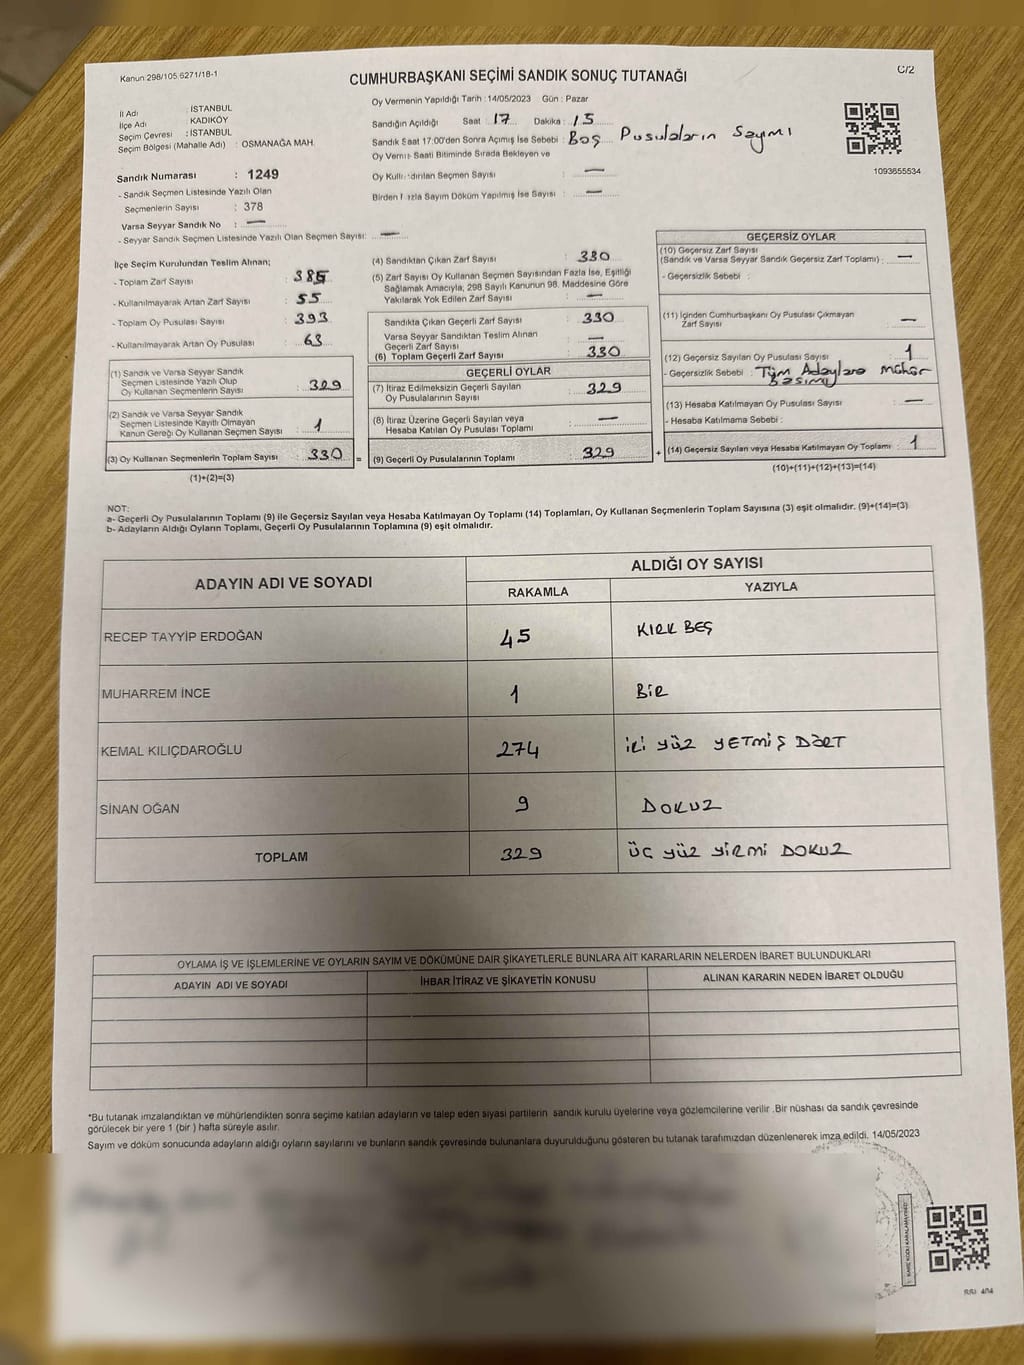 Kanun:298/105 6271/18-1
CUMHURBAŞKANI SEÇİMİ SANDIK SONUÇ TUTANAĞI
C/2
İl Adı : İSTANBUL
İlçe Adı : KADIKÖY
Seçim Çevresi : İSTANBUL
Seçim Bölgesi (Mahalle Adı) : OSMANAĞA MAH.
Oy Vermenin Yapıldığı Tarih : 14/05/2023 Gün : Pazar
Sandığın Açıldığı Saat 17 Dakika : 15
Sandık Saat 17:00'den Sonra Açımış İse Sebebi : Boş Pusulaların Sayımı
Oy Verme Saati Bitiminde Sırada Bekleyen ve
Oy Kullandırılan Seçmen Sayısı : —
Birden Fazla Sayım Döküm Yapılmış İse Sayısı : —
1093655534
Sandık Numarası : 1249
- Sandık Seçmen Listesinde Yazılı Olan
Seçmenlerin Sayısı : 378
Varsa Seyyar Sandık No : —
- Seyyar Sandık Seçmen Listesinde Yazılı Olan Seçmen Sayısı: —
İlçe Seçim Kurulundan Teslim Alınan;
- Toplam Zarf Sayısı : 385
- Kullanılmayarak Artan Zarf Sayısı : 55
- Toplam Oy Pusulası Sayısı : 393
- Kullanılmayarak Artan Oy Pusulası : 63
(1) Sandık ve Varsa Seyyar Sandık
Seçmen Listesinde Yazılı Olup
Oy Kullanan Seçmenlerin Sayısı : 329
(2) Sandık ve Varsa Seyyar Sandık
Seçmen Listesinde Kayıtlı Olmayan
Kanun Gereği Oy Kullanan Seçmen Sayısı : 1
(3) Oy Kullanan Seçmenlerin Toplam Sayısı : 330
(1)+(2)=(3)
(4) Sandıktan Çıkan Zarf Sayısı : 330
(5) Zarf Sayısı Oy Kullanan Seçmen Sayısından Fazla İse, Eşitliği
Sağlamak Amacıyla, 298 Sayılı Kanunun 98. Maddesine Göre
Yakılarak Yok Edilen Zarf Sayısı : —
Sandıkta Çıkan Geçerli Zarf Sayısı : 330
Varsa Seyyar Sandıktan Teslim Alınan
Geçerli Zarf Sayısı : —
(6) Toplam Geçerli Zarf Sayısı : 330
GEÇERLİ OYLAR
(7) İtiraz Edilmeksizin Geçerli Sayılan
Oy Pusulalarının Sayısı : 329
(8) İtiraz Üzerine Geçerli Sayılan veya
Hesaba Katılan Oy Pusulası Toplamı : —
= (9) Geçerli Oy Pusulalarının Toplamı : 329
GEÇERSİZ OYLAR
(10) Geçersiz Zarf Sayısı
(Sandık ve Varsa Seyyar Sandık Geçersiz Zarf Toplamı) : —
- Geçersizlik Sebebi :
(11) İçinden Cumhurbaşkanı Oy Pusulası Çıkmayan
Zarf Sayısı : —
(12) Geçersiz Sayılan Oy Pusulası Sayısı : 1
- Geçersizlik Sebebi : Tüm Adaylara mühür
basımı
(13) Hesaba Katılmayan Oy Pusulası Sayısı : —
- Hesaba Katılmama Sebebi :
+ (14) Geçersiz Sayılan veya Hesaba Katılmayan Oy Toplamı : 1
(10)+(11)+(12)+(13)=(14)
NOT:
a- Geçerli Oy Pusulalarının Toplamı (9) ile Geçersiz Sayılan veya Hesaba Katılmayan Oy Toplamı (14) Toplamları, Oy Kullanan Seçmenlerin Toplam Sayısına (3) eşit olmalıdır. (9)+(14)=(3)
b- Adayların Aldığı Oyların Toplamı, Geçerli Oy Pusulalarının Toplamına (9) eşit olmalıdır.
ADAYIN ADI VE SOYADI ALDIĞI OY SAYISI
RAKAMLA YAZIYLA
RECEP TAYYİP ERDOĞAN 45 KIRK BEŞ
MUHARREM İNCE 1 BİR
KEMAL KILIÇDAROĞLU 274 İKİ YÜZ YETMİŞ DÖRT
SİNAN OĞAN 9 DOKUZ
TOPLAM 329 ÜÇ YÜZ YİRMİ DOKUZ
OYLAMA İŞ VE İŞLEMLERİNE VE OYLARIN SAYIM VE DÖKÜMÜNE DAİR ŞİKAYETLERLE BUNLARA AİT KARARLARIN NELERDEN İBARET BULUNDUKLARI
ADAYIN ADI VE SOYADI İHBAR İTİRAZ VE ŞİKAYETİN KONUSU ALINAN KARARIN NEDEN İBARET OLDUĞU
*Bu tutanak imzalandıktan ve mühürlendikten sonra seçime katılan adayların ve talep eden siyasi partilerin sandık kurulu üyelerine veya gözlemcilerine verilir .Bir nüshası da sandık çevresinde
görülecek bir yere 1 (bir ) hafta süreyle asılır.
Sayım ve döküm sonucunda adayların aldığı oyların sayılarını ve bunların sandık çevresinde bulunanlara duyurulduğunu gösteren bu tutanak tarafımızdan düzenlenerek imza edildi. 14/05/2023
KARE KODU KARALAMAYINIZ